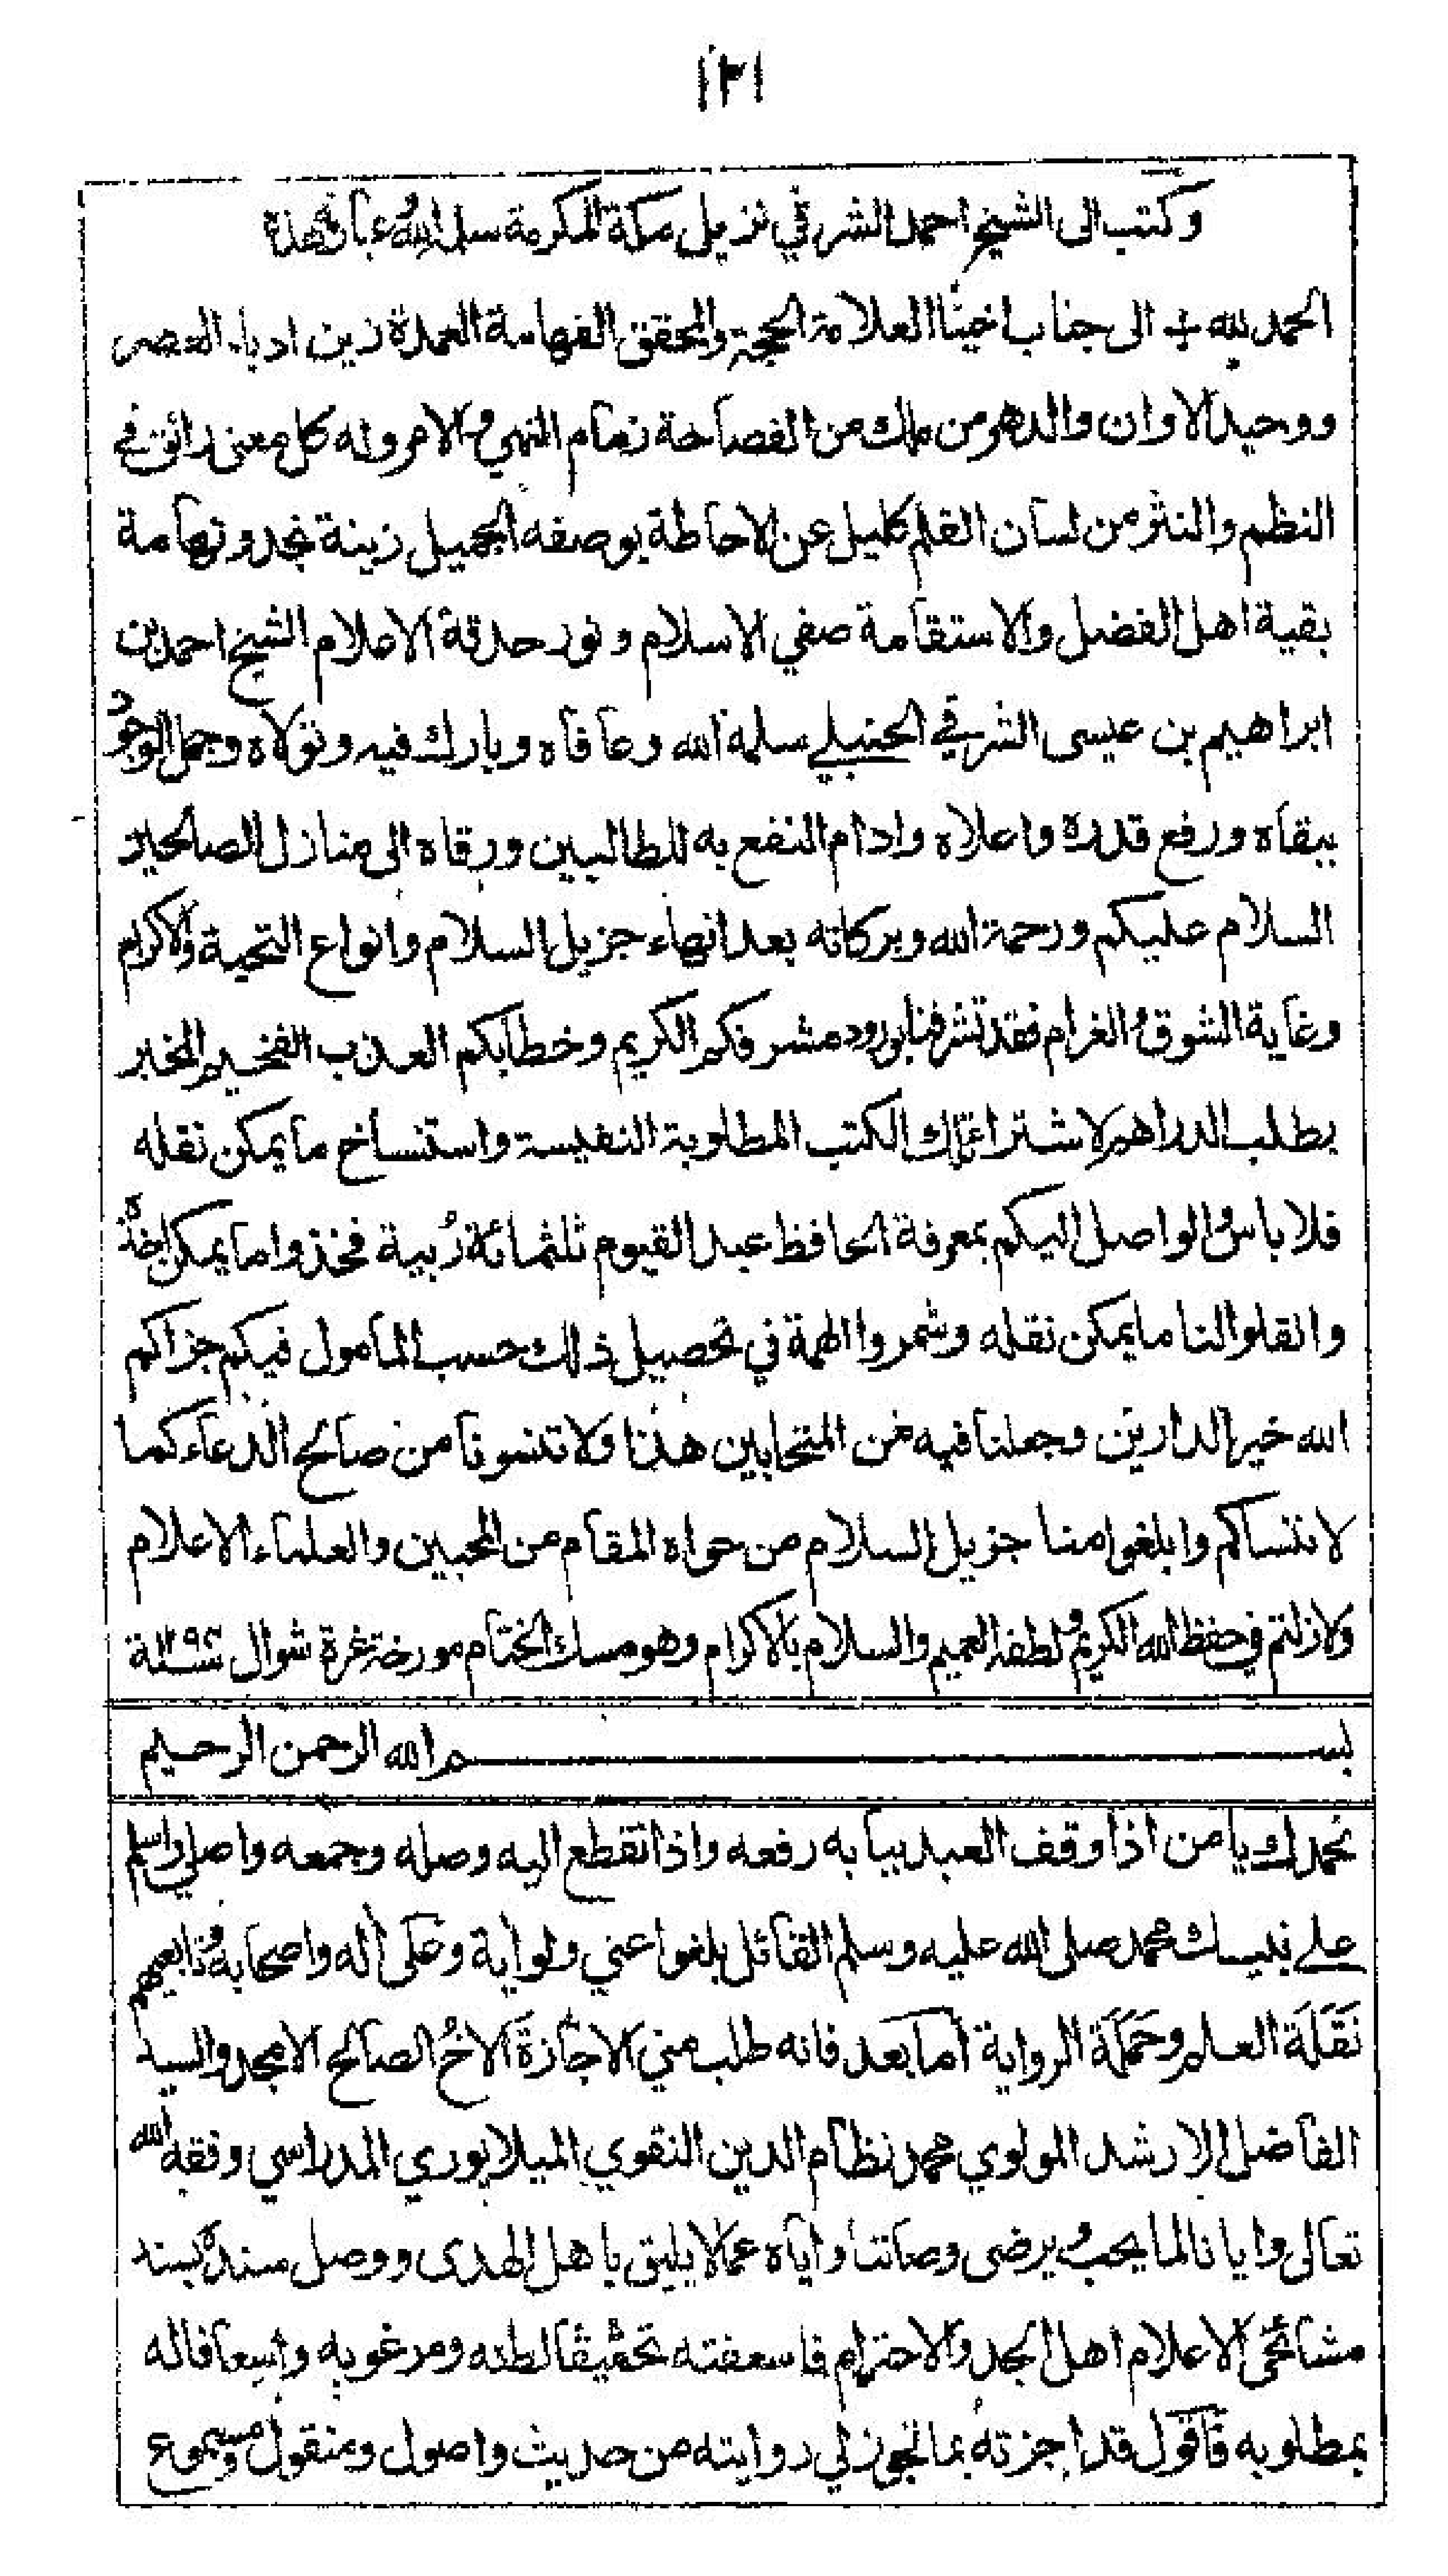 ١٢١
وكتب الى الشيخ احمد الشرقي نزيل مكة المكرمة سلمه الله عبارته هذه
الحمد لله الى جناب اخينا العلامة الحجة والمحقق الفهامة العمدة زين ادباء العصر
ووحيد الاوان والدهر من ملك من الفصاحة زمام النهي والامر وله كل معنى رائق في
النظم والنثر من لسان القلم كليل عن الاحاطة بوصفه الجميل زينة نجد وتهامة
بقية اهل الفضل والاستقامة صفي الاسلام ونور حدقة الاعلام الشيخ احمد بن
ابراهيم بن عيسى الشرقي الحنبلي سلمه الله وعافاه وبارك فيه وتولاه وجمل الوجود
ببقاه ورفع قدره واعلاه وادام النفع به للطالبين ورقاه الى منازل الصالحين
السلام عليكم ورحمة الله وبركاته بعد انهاء جزيل السلام وانواع التحية والاكرام
وغاية الشوق والغرام فقد تشرفنا بورود مشرفكم الكريم وخطابكم العذب الفخيم المخبر
بطلب الدراهم لاشتراء تلك الكتب المطلوبة النفيسة واستنساخ ما يمكن نقله
فلا باس والواصل اليكم بمعرفة الحافظ عبد القيوم ثلثمائة رُبية فخذوا ما يمكن اخذه
وانقلوا لنا ما يمكن نقله وشمروا الهمة في تحصيل ذلك حسب المأمول فيكم جزاكم
الله خير الدارين وجعلنا فيه من المتحابين هذا ولا تنسونا من صالح الدعاء كما
لا ننساكم وابلغوا منا جزيل السلام من حواه المقام من المحبين والعلماء الاعلام
ولا زلتم في حفظ الله الكريم ولطفه العميم والسلام بالاكرام وهو مسك الختام مورخة غرة شوال سنة
بسم الله الرحمن الرحيم
نحمدك يا من اذا وقف العبد ببابه رفعه واذا انقطع اليه وصله وجمعه واصلي واسلم
على نبيك محمد صلى الله عليه وسلم القائل بلغوا عني ولو اية وعلى أله واصحابه وتابعيهم
نَقَلَة العلم وحَمَلَة الرواية أما بعد فانه طلب مني الاجازةَ الاخُ الصالح الامجد والسيد
الفاضل الارشد المولوي محمد نظام الدين النقوي الميلابوري المدراسي وفقه الله
تعالى وايانا لما يحب ويرضى وصاننا واياه عما لا يليق باهل الهدى ووصل سنده بسند
مشائخي الاعلام اهل المجد والاحترام فاسعفته تحقيقا لظنه ومرغوبه واسعافا له
بمطلوبه فأقول قد اجزته بما تجوز لي روايته من حديث واصول ومنقول ومسموع